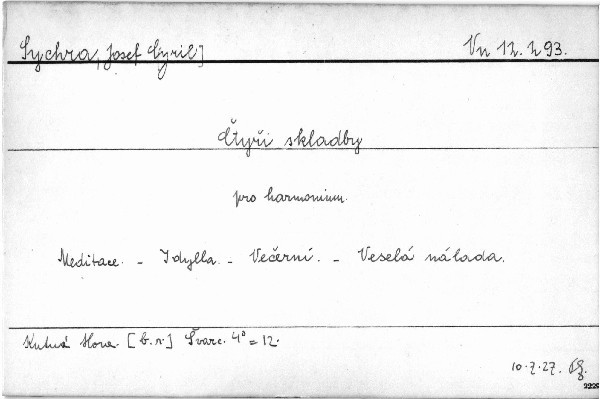 Sychra, Josef Cyril] Vn 12.293.
Čtyři skladby
pro harmonium.
Meditace. - Idylla. - Večerní. - Veselá nálada.
Kutná Hora. [b.r.] Švarc. 4° = 12.
10.7.27.